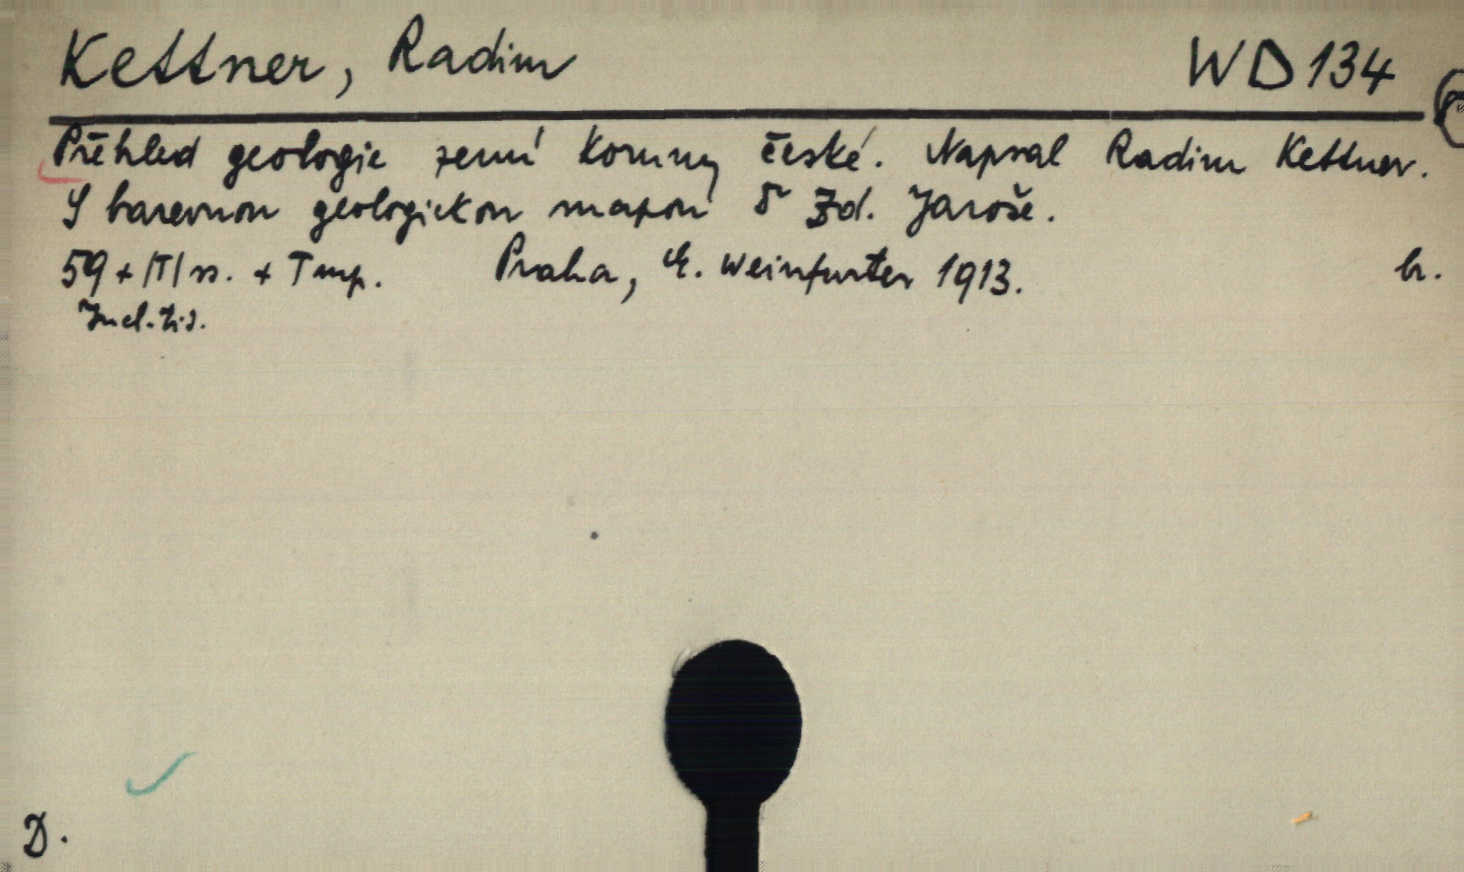 Kettner, Radim WD 134
Přehled geologie zemí koruny české. Napsal Radim Kettner.
S barevnou geologickou mapou Zd. Jaroše.
59 + |T| ss. + T mp. Praha, E. Weinfurter 1913. br.
Incl. tis.
D.